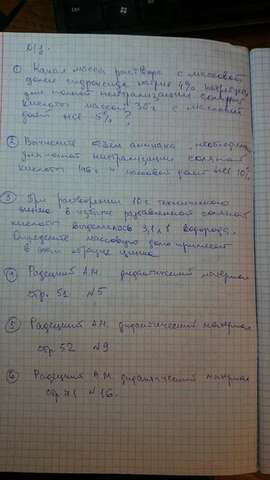 ① Какая масса раствора с массовой
долей гидроксида натрия 4% необходима
для полной нейтрализации соляной
кислоты массой 30г с массовой
долей HCl 5%?
② Вычислите объем аммиака, необходимого
для полной нейтрализации соляной
кислоты 146г и массовой долей HCl 10%
③ При растворении 16г технического
цинка в избытке разбавленной соляной
кислоты выделилось 3,1л водорода.
Определите массовую долю примесей
в этом образце цинка.
④ Радецкий А.М. дидактический материал
стр. 51 №5
⑤ Радецкий А.М. дидактический материал
стр 52 №9
⑥ Радецкий А.М. дидактический материал
стр №16.